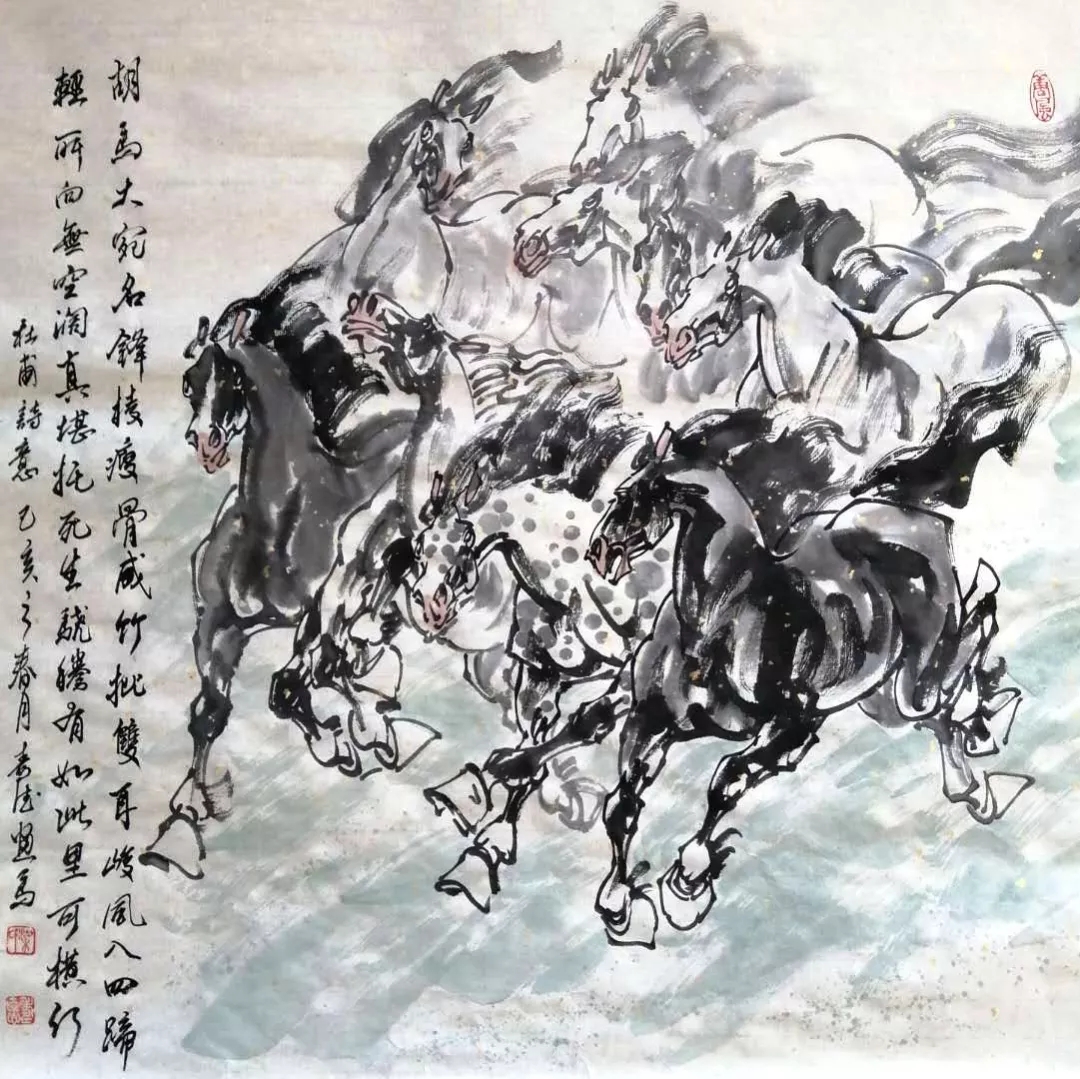 胡馬大宛名鋒棱瘦骨成竹批雙耳峻風入四蹄
輕所向無空闊真堪托死生驍騰有如此里可橫行
杜甫詩意 己亥之春月 畫馬